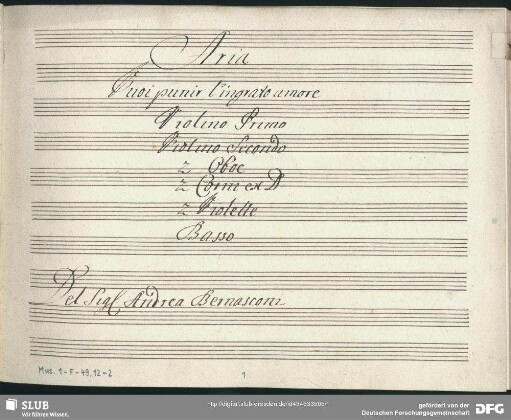 Aria
Vuoi punir l'ingrato amore
Violino Primo
Violino Secondo
2 Oboe
2 Corni ex D
2 Violette
Basso
Del Sigr Andrea Bernasconi
Mus. 1-F-49,12-2
1
SLUB
Wir führen Wissen.
gefördert von der
Deutschen Forschungsgemeinschaft
DFG